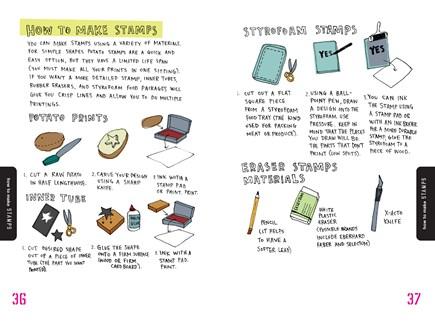 HOW TO MAKE STAMPS
YOU CAN MAKE STAMPS USING A VARIETY OF MATERIALS.
FOR SIMPLE SHAPES POTATO STAMPS ARE A QUICK AND
EASY OPTION, BUT THEY HAVE A LIMITED LIFE SPAN
(YOU MUST MAKE ALL YOUR PRINTS IN ONE SITTING).
IF YOU WANT A MORE DETAILED STAMP, INNER TUBES,
RUBBER ERASERS, AND STYROFOAM FOOD PACKAGES WILL
GIVE YOU CRISP LINES AND ALLOW YOU TO DO MULTIPLE
PRINTINGS.
POTATO PRINTS
1. CUT A RAW POTATO
IN HALF LENGTHWISE.
2. CARVE YOUR DESIGN
USING A SHARP
KNIFE.
3. INK WITH A
STAMP PAD
OR PAINT. PRINT.
INNER TUBE
1. CUT DESIRED SHAPE
OUT OF A PIECE OF INNER
TUBE (THE PART YOU WANT
PRINTED).
2. GLUE THE SHAPE
ONTO A FIRM SURFACE
(WOOD OR FIRM
CARDBOARD).
3. INK WITH A
STAMP PAD.
PRINT.
how to make STAMPS
36
STYROFOAM STAMPS
YES
YES
1. CUT OUT A FLAT
SQUARE PIECE
FROM A STYROFOAM
FOOD TRAY (THE KIND
USED FOR PACKING
MEAT OR PRODUCE).
2. USING A BALL-
POINT PEN, DRAW
A DESIGN ONTO THE
STYROFOAM. USE
PRESSURE. KEEP IN
MIND THAT THE PLACES
YOU DRAW WILL BE
THE PARTS THAT DON'T
PRINT (LOW SPOTS).
3. YOU CAN INK
THE STAMP USING
A STAMP PAD OR
WITH AN INK BRAYER.
FOR A MORE DURABLE
STAMP, GLUE THE
STYROFOAM TO A
PIECE OF WOOD.
ERASER STAMPS
MATERIALS
PENCIL
(IT HELPS
TO HAVE A
SOFTER LEAD)
WHITE
PLASTIC
ERASER
(POSSIBLE BRANDS
INCLUDE EBERHARD
FABER AND
X-ACTO
KNIFE
how to make STAMPS
37